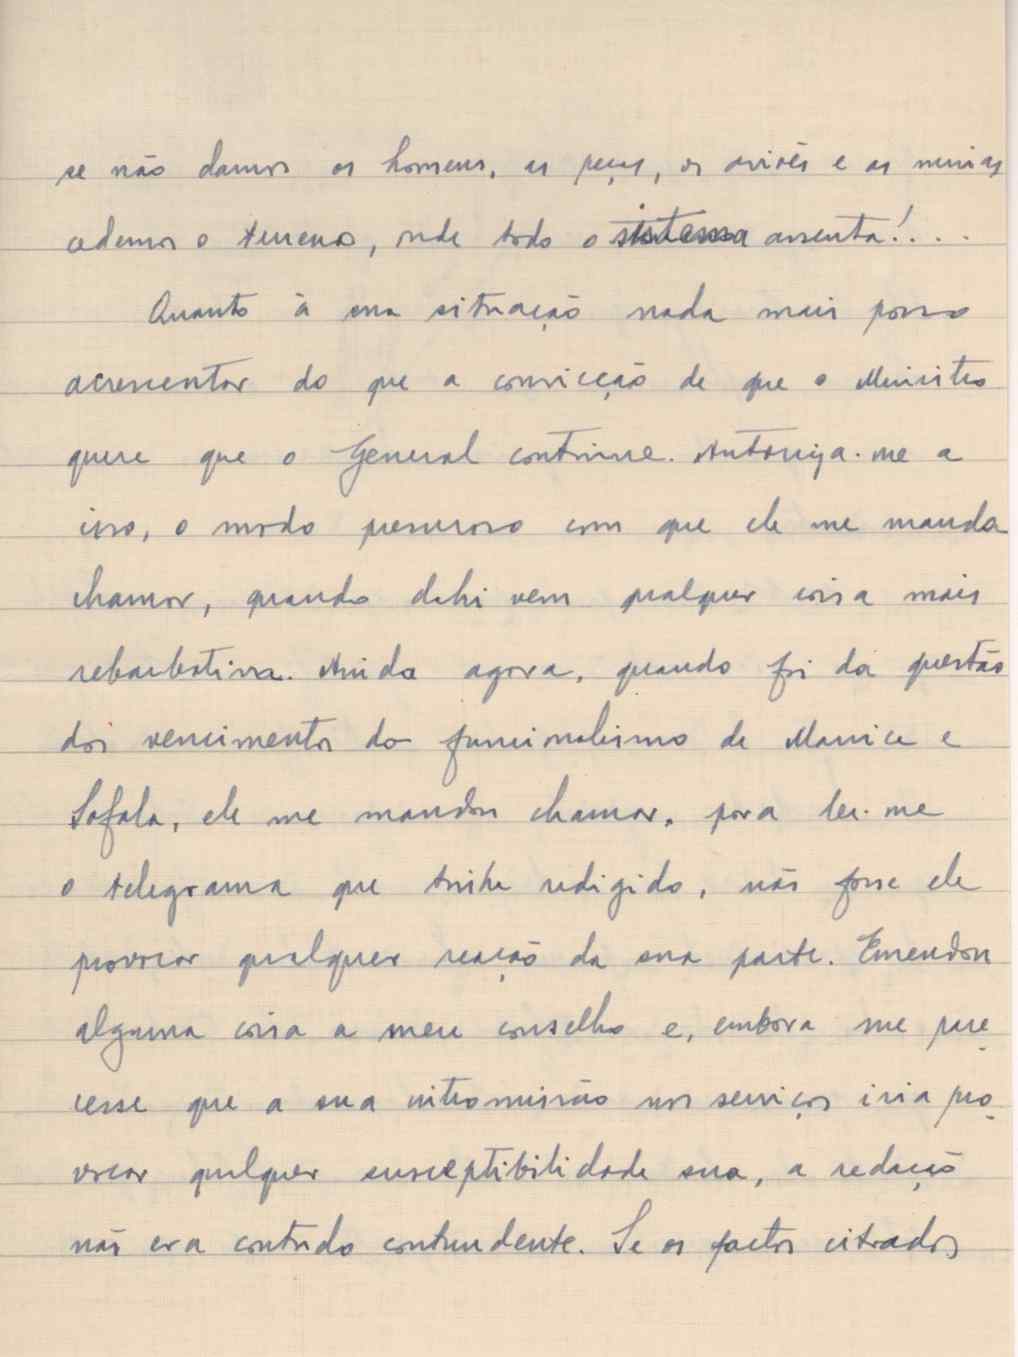 se não damos os homens, as peças, os aviões e as munições
cedemos o terreno, onde todo o sistema assenta!....
Quanto à sua situação nada mais posso
acrescentar do que a convicção de que o Ministro
quere que o General continue. Autoriza-me a
isso, o modo pressuroso com que ele me manda
chamar, quando dahi vem qualquer coisa mais
rebarbativa. Ainda agora, quando foi da questão
dos vencimentos do funcionalismo de Manica e
Sofala, ele me mandou chamar, para ler-me
o telegrama que tinha redigido, não fosse ele
provocar qualquer reação da sua parte. Emendou
alguma coisa a meu conselho e, embora me pare
cesse que a sua intromissão nos serviços iria pro
vocar qualquer susceptibilidade sua, a redação
não era contudo contundente. Se os factos citados